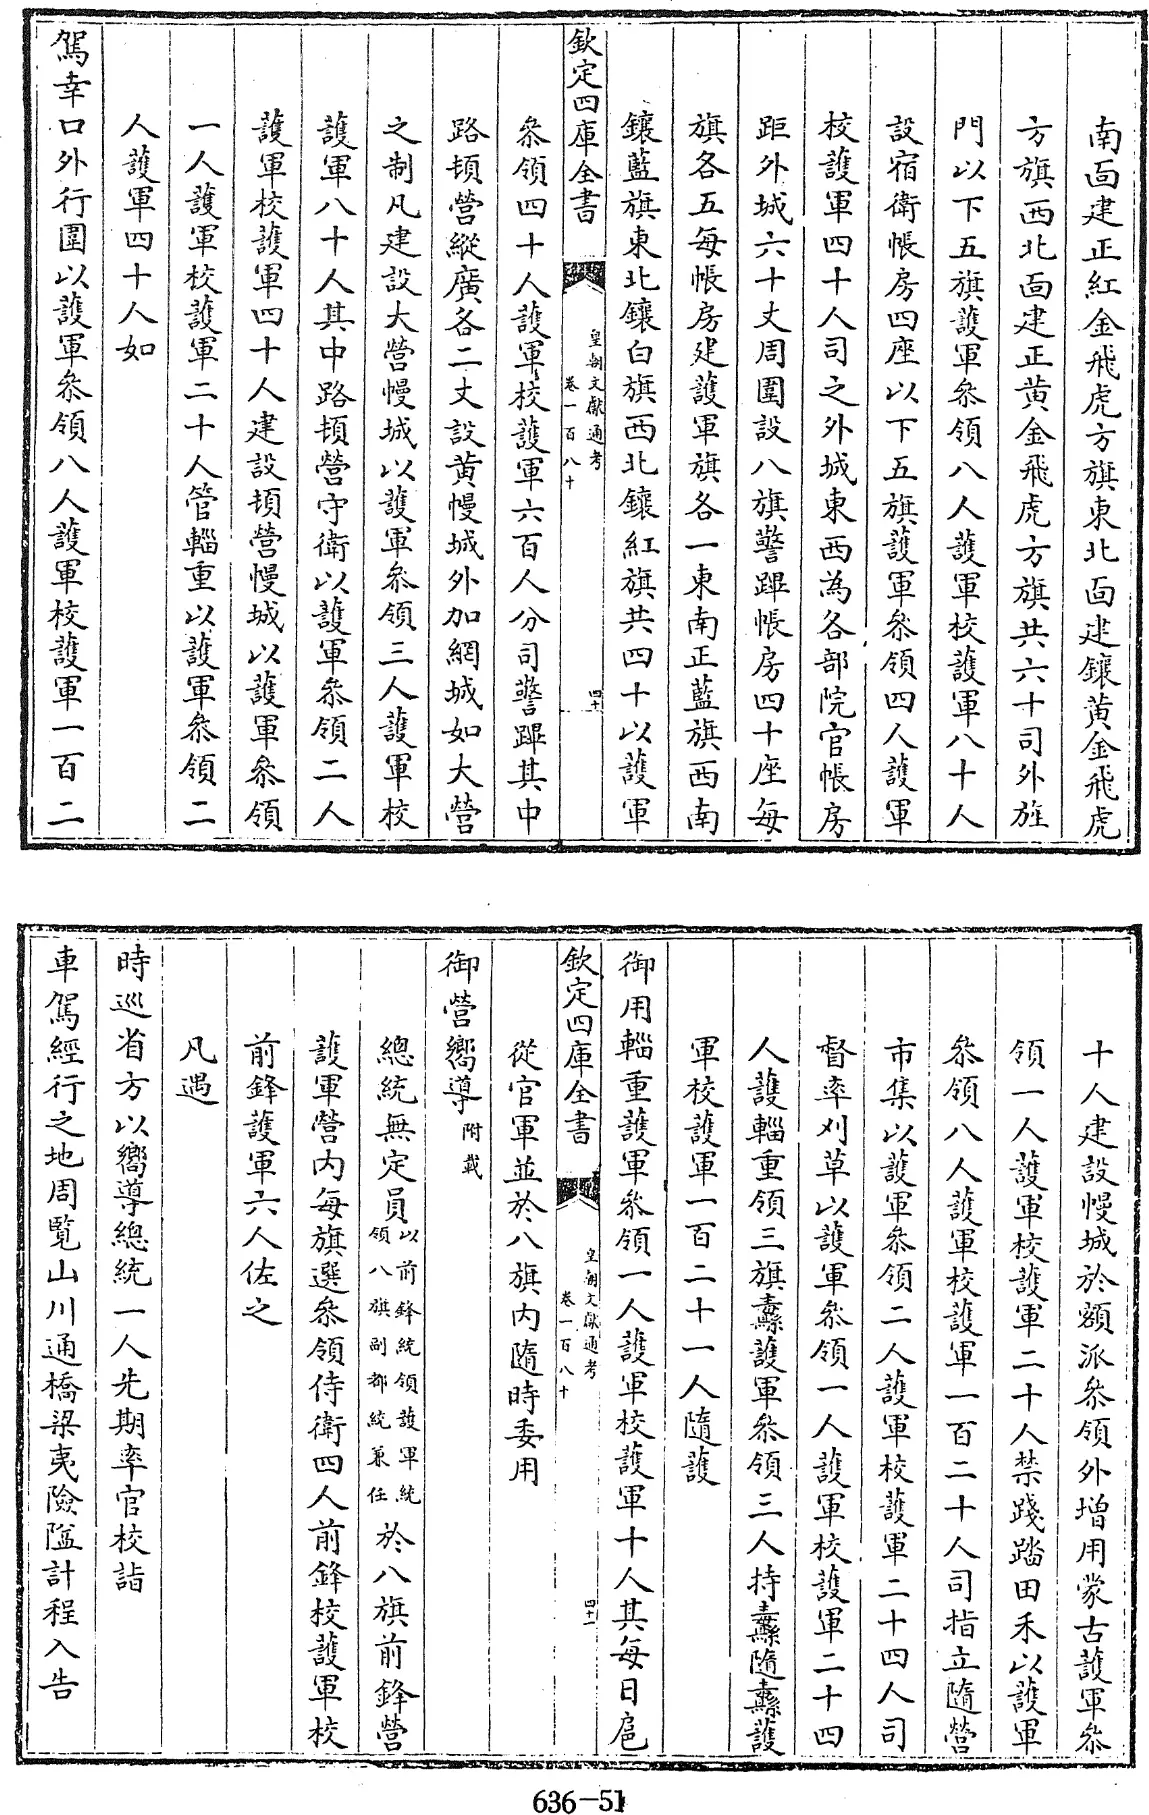 南面建正紅金飛虎方旗東北面建鑲黃金飛虎
方旗西北面建正黃金飛虎方旗共六十司外旌
門以下五旗護軍叅領八人護軍校護軍八十人
設宿衛帳房四座以下五旗護軍叅領四人護軍
校護軍四十人司之外城東西為各部院官帳房
距外城六十丈周圍設八旗警蹕帳房四十座每
旗各五每帳房建護軍旗各一東南正藍旗西南
鑲藍旗東北鑲白旗西北鑲紅旗共四十以護軍
欽定四庫全書
皇朝文獻通考
卷一百八十
四十
叅領四十人護軍校護軍六百人分司警蹕其中
路頓營縱廣各二丈設黃幔城外加網城如大營
之制凡建設大營幔城以護軍叅領三人護軍校
護軍八十人其中路頓營守衛以護軍叅領二人
護軍校護軍四十人建設頓營幔城以護軍叅領
一人護軍校護軍二十人管輜重以護軍叅領二
人護軍四十人如
駕幸口外行圍以護軍叅領八人護軍校護軍一百二
十人建設幔城於額派叅領外增用蒙古護軍叅
領一人護軍校護軍二十人禁踐踏田禾以護軍
叅領八人護軍校護軍一百二十人司指立隨營
市集以護軍叅領二人護軍校護軍二十四人司
督率刈草以護軍叅領一人護軍校護軍二十四
人護輜重領三旗纛護軍叅領三人持纛隨纛護
軍校護軍一百二十一人隨護
御用輜重護軍叅領一人護軍校護軍十人其每日扈
欽定四庫全書
皇朝文獻通考
卷一百八十
四十一
從官軍並於八旗內隨時委用
御營嚮導附載
總統無定員以前鋒統領護軍統領八旗副都統兼任於八旗前鋒營
護軍營內每旗選叅領侍衛四人前鋒校護軍校
前鋒護軍六人佐之
凡遇
時巡省方以嚮導總統一人先期率官校詣
車駕經行之地周覽山川通橋梁夷險隘計程入告
636-51